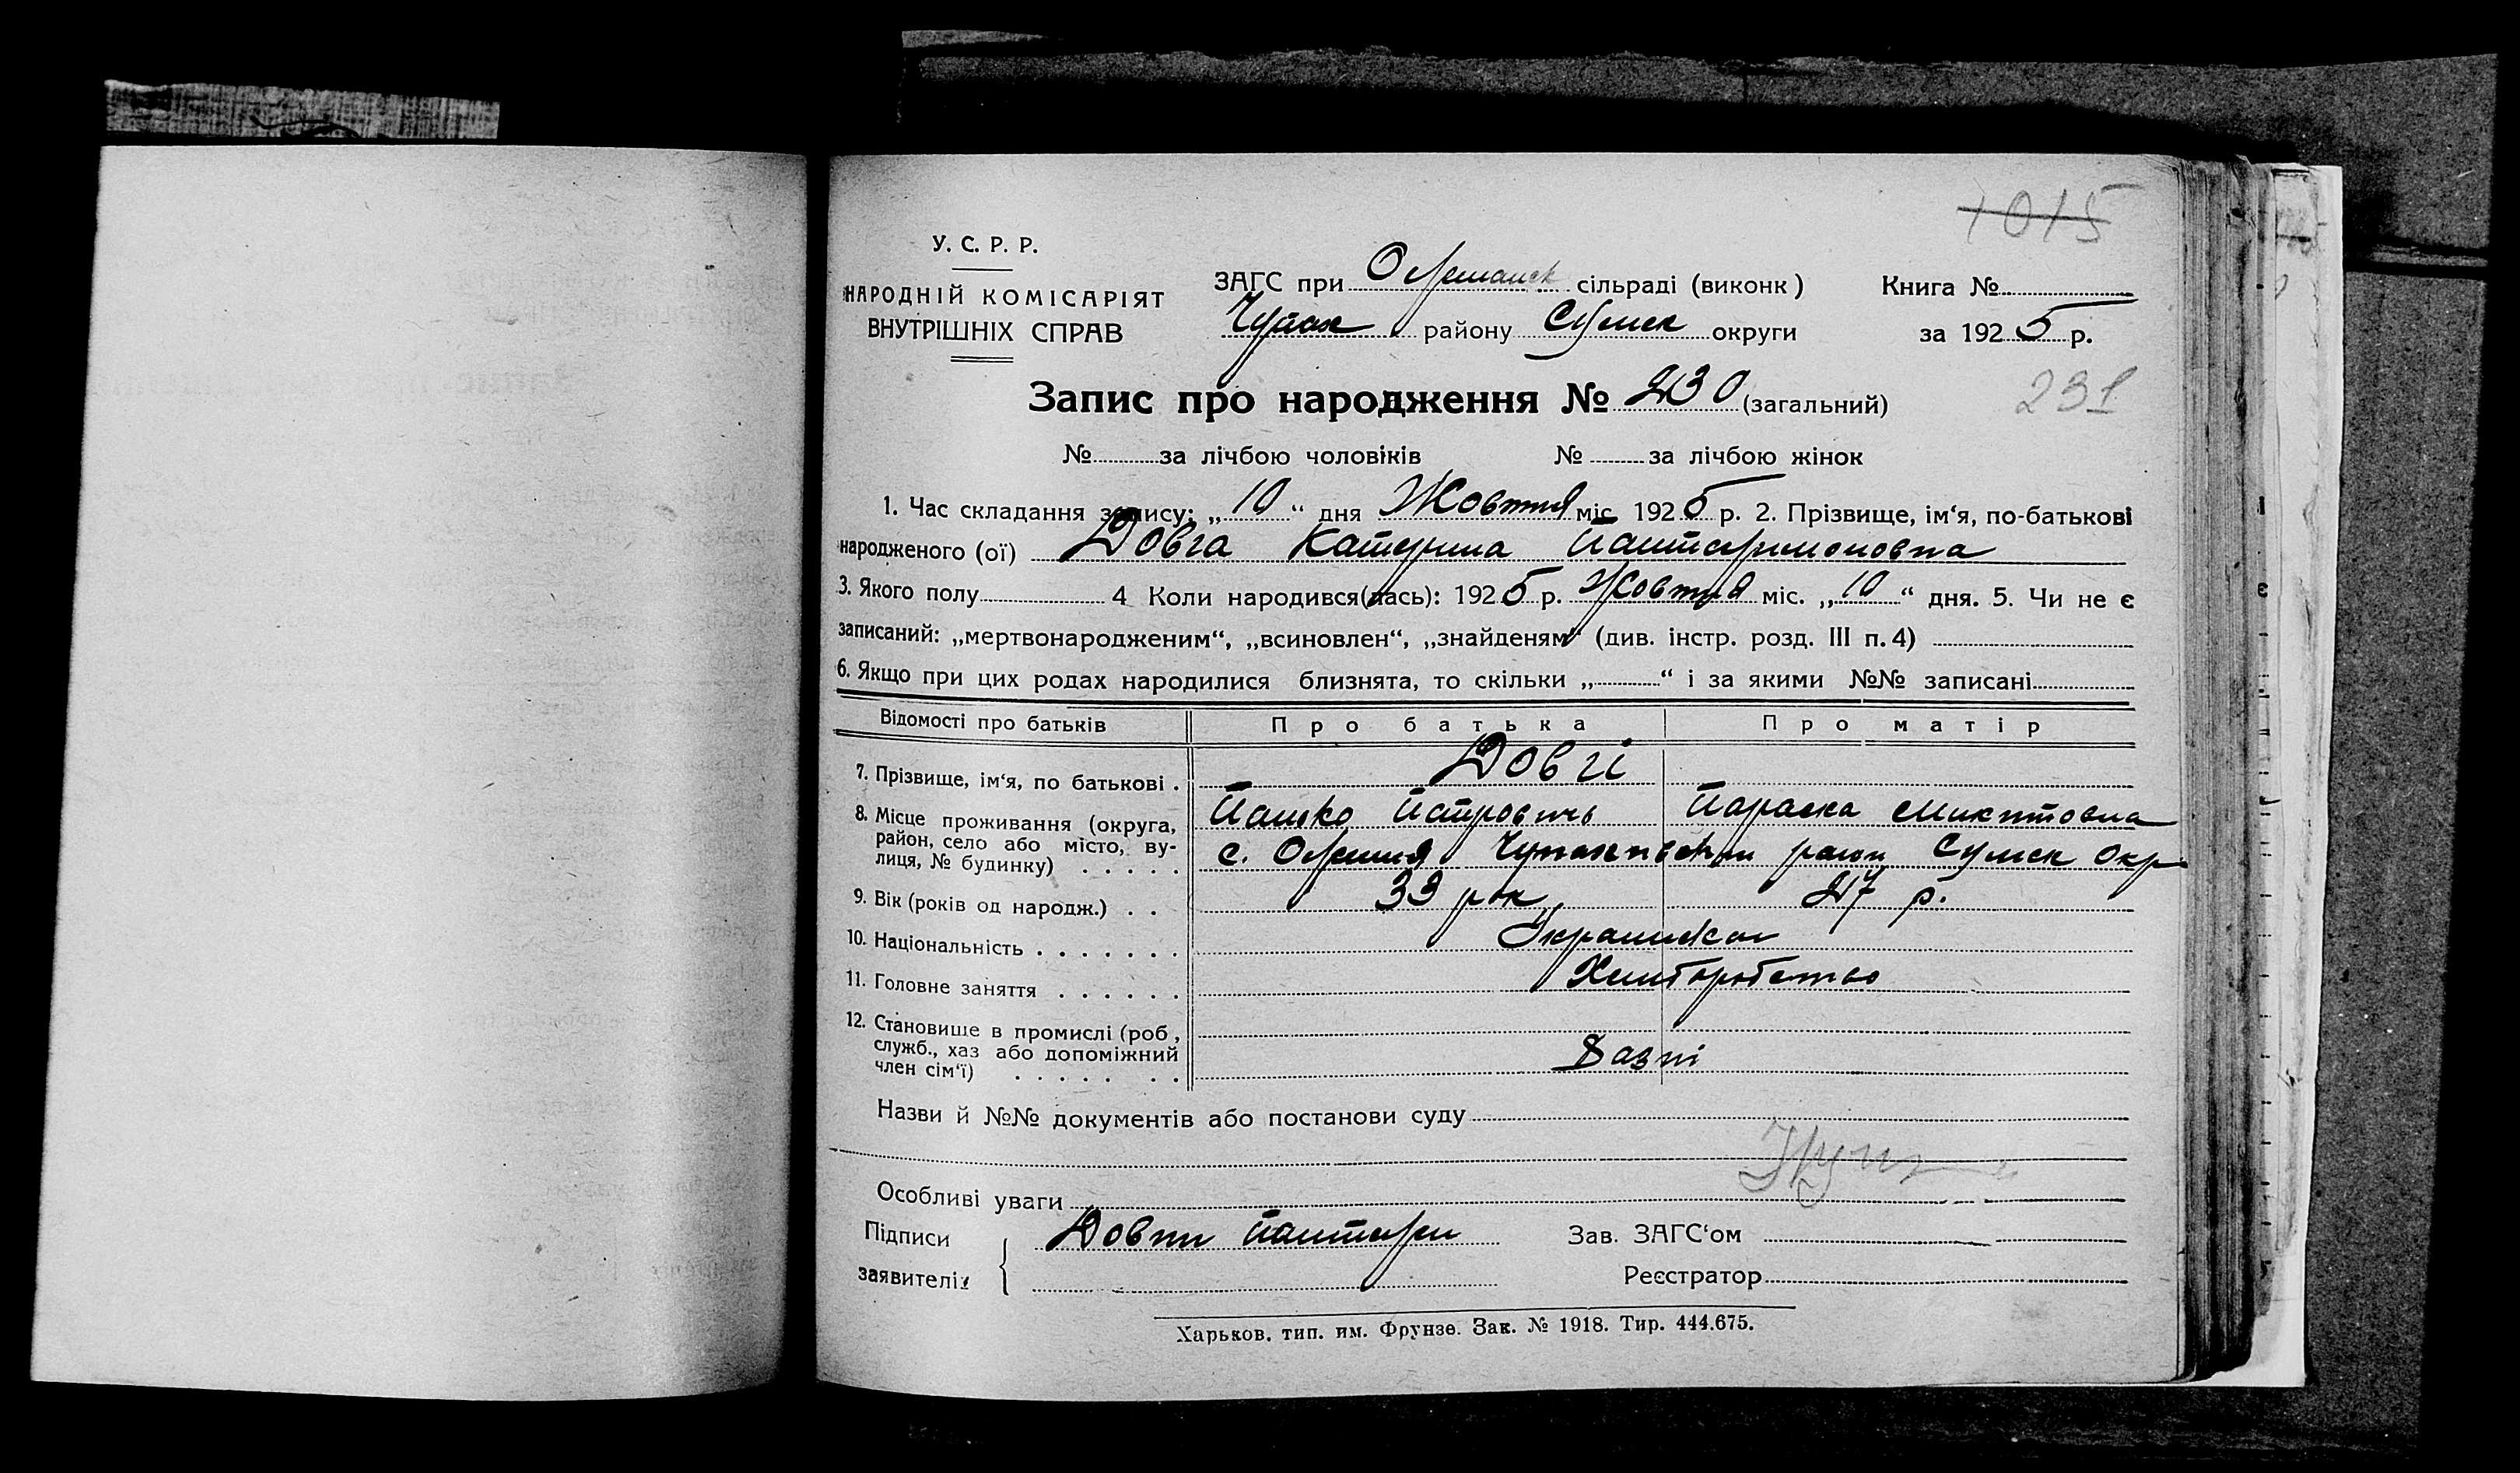 1015
У. С. Р. Р.
НАРОДНІЙ КОМІСАРІЯТ
ВНУТРІШНІХ СПРАВ
ЗАГС при сільраді (виконк)
Книга №
Чупах району Сумск округи
за 1925 р.
Запис про народження № 230 (загальний)
231
№ за лічбою чоловіків № за лічбою жінок
1. Час складання запису: „10“ дня Жовтня міс 1925 р. 2. Прізвище, ім‘я, по-батькові
народженого (ої) Довга Катерина
3. Якого полу 4 Коли народився(лась): 1925 р. Жовтня міс. „10“ дня. 5. Чи не є
записаний: „мертвонародженим“, „всиновлен“, „знайденям“ (див. інстр. розд. III п. 4)
6. Якщо при цих родах народилися близнята, то скільки „ “ і за якими №№ записані
Відомості про батьків Про батька Про матір
7. Прізвище, ім‘я, по батькові . Довгі
Петрович Параска Микитовна
8. Місце проживання (округа,
район, село або місто, ву-
лиця, № будинку) . . . . .
с. Олешня район Сумск Окр
9. Вік (років од народж.) . . 33 рок 27 р.
10. Національність . . . . . . .
11. Головне заняття . . . . . . Хліборобство
12. Становище в промислі (роб,
служб., хаз або допоміжний
член сім‘ї) . . . . . . .
Назви й №№ документів або постанови суду
Особливі уваги
Підписи
заявителів
Зав. ЗАГС‘ом
Реєстратор
Харьков. тип. им. Фрунзе. Зак. № 1918. Тир. 444.675.